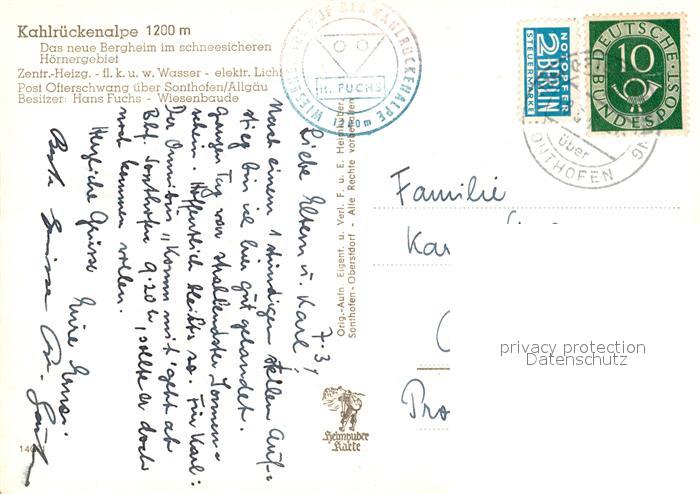 Kahlrückenalpe 1200 m
Das neue Bergheim im schneesicheren
Hörnergebiet
Zentr.-Heizg. - fl. k. u. w. Wasser - elektr. Licht
Post Ofterschwang über Sonthofen/Allgäu
Besitzer: Hans Fuchs - Wiesenbaude
AUF DER KAHLRÜCKENALPE
H. FUCHS
1200 m
NOTOPFER
2 BERLIN
STEUERMARKE
DEUTSCHE
10
BUNDESPOST
über
7.3.
Liebe Eltern u. Karl!
Nach einem 1 stündigen steilen Auf-
stieg bin ich hier gut gelandet.
Ganzen Tag von strahlendster Sonne
Hoffentlich bleibt's so. Für Karl:
Der Omnibus "Komm mit" geht ab
Bhf. Sonthofen 9.20 h, sollte er doch
noch kommen wollen.
Herzliche Grüsse
Eure
Beste Grüsse
Orig.-Aufn. Eigent. u. Verl. F. u. E. Heimhuber,
Sonthofen-Oberstdorf - Alle Rechte vorbehalten
Heimhuber
Karte
Familie
privacy protection
Datenschutz